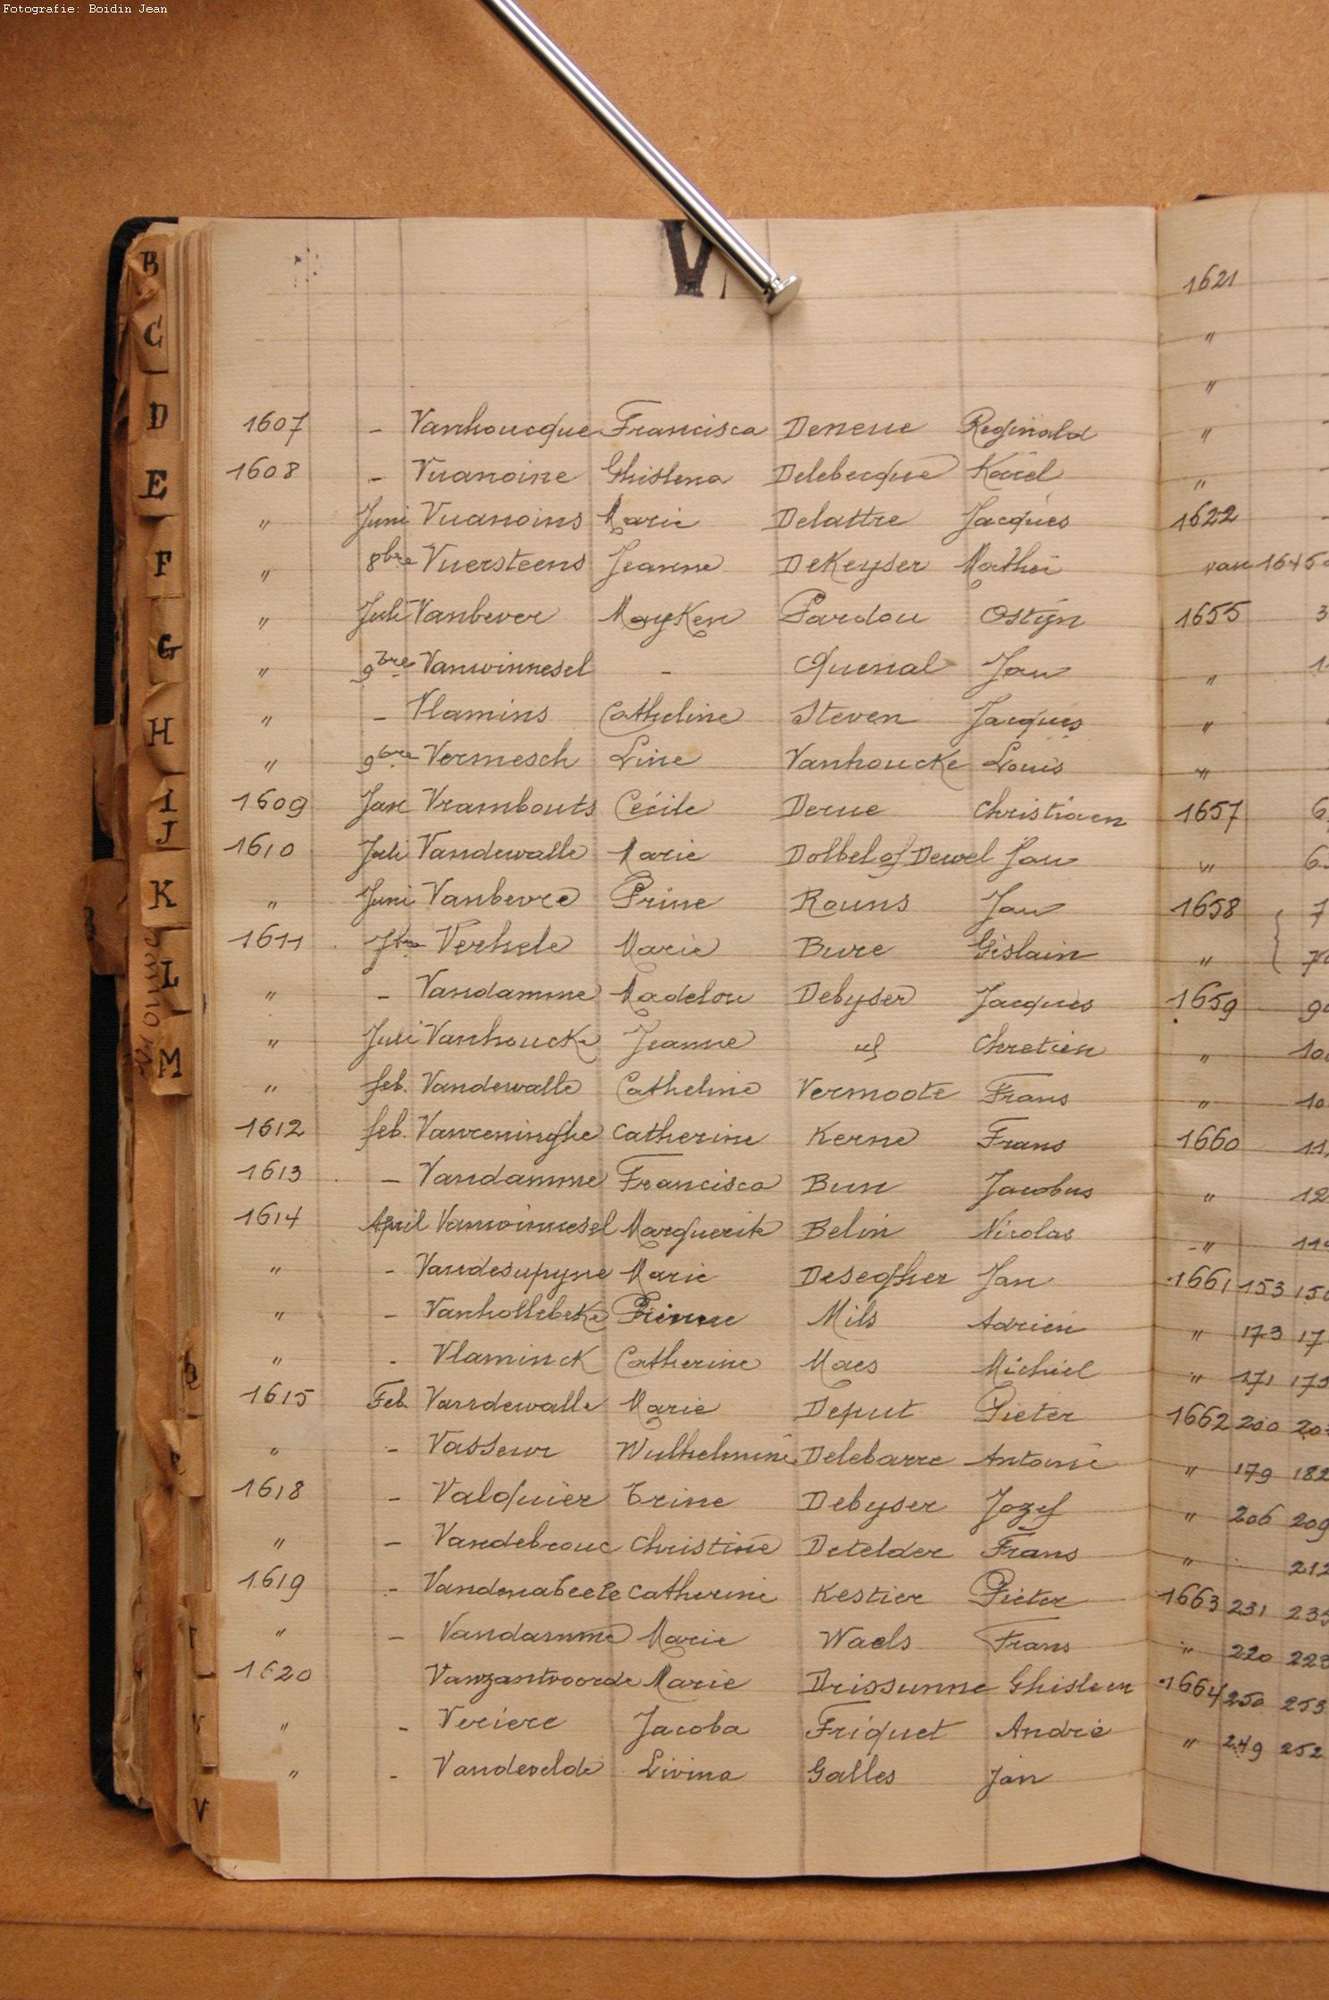 Fotografie: Boidin Jean
V
B
C
D
E
F
G
H
I
J
K
L
M
V
1607 - Vanhoucque Francisca Deneue Reginald
1608 - Vuanoine Ghislena Delebecque Karel
" Juni Vuanoins Marie Delattre Jacques
" 8bre Vuersteens Jeanne DeKeyser Mathei
" Juli Vanbever MayKen Pardou Ostijn
" 9bre Vanwinnesel - Quenal Jan
" - Vlamins Catheline Steven Jacques
" 9bre Vermesch Line Vanhoucke Louis
1609 Jan Vrambouts Cécile Derue Christiaen
1610 Juli Vandewalle Marie Dolbel of Dewel Jan
" Juni Vanbevre Prine Rouns Jan
1611 7bre Verhele Marie Bure Gislain
" - Vandamme Madelou Debyser Jacques
" Juli Vanhoucke Jeanne Chretien
" feb. Vandewalle Catheline Vermoote Frans
1612 feb. Vanreninghe Catherine Kerne Frans
1613 - Vandamme Francisca Bun Jacobus
1614 April Vanwinnesel Marguerite Belin Nicolas
" - Vandesupyne Marie Desegher Jan
" - Vanhollebeke Prinne Mils Adrien
" - Vlaminck Catherine Maes Michiel
1615 Feb. Vandewalle Marie Deput Pieter
" - Vasseur Wulhelmine Delebarre Antoine
1618 - Valquier Trine Debyser Jozef
" - Vandebrouc Christine Detelder Frans
1619 - Vandenabeele Catherine Kestier Pieter
" - Vandamme Marie Waels Frans
1620 Vanzantvoorde Marie Drissunne Ghisleen
" - Veriere Jacoba Friquet André
" - Vandevelde Livina Galles Jan
1621
"
"
"
"
1622
van 1645
1655
"
"
"
1657
"
1658
"
1659
"
"
1660
"
"
1661 153
" 173
" 171
1662 200
" 179 182
" 206 209
" 212
1663 231
" 220
1664 250 253
" 249 252